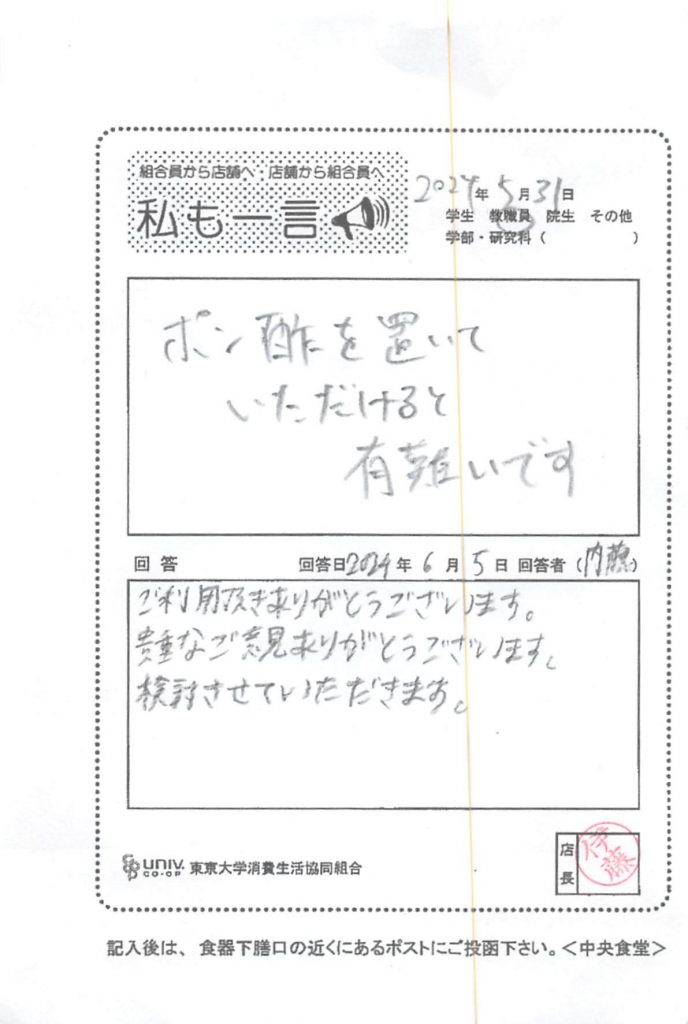 組合員から店舗へ・店舗から組合員へ
私も一言
2024年5月31日
学生 教職員 院生 その他
学部・研究科( )
ポン酢を置いて
いただけると
有難いです
回答 回答日2024年6月5日 回答者(内藤)
ご利用頂きありがとうございます。
貴重なご意見ありがとうございます。
検討させていただきます。
UNIV. CO-OP 東京大学消費生活協同組合
店長 伊藤
記入後は、食器下膳口の近くにあるポストにご投函下さい。<中央食堂>